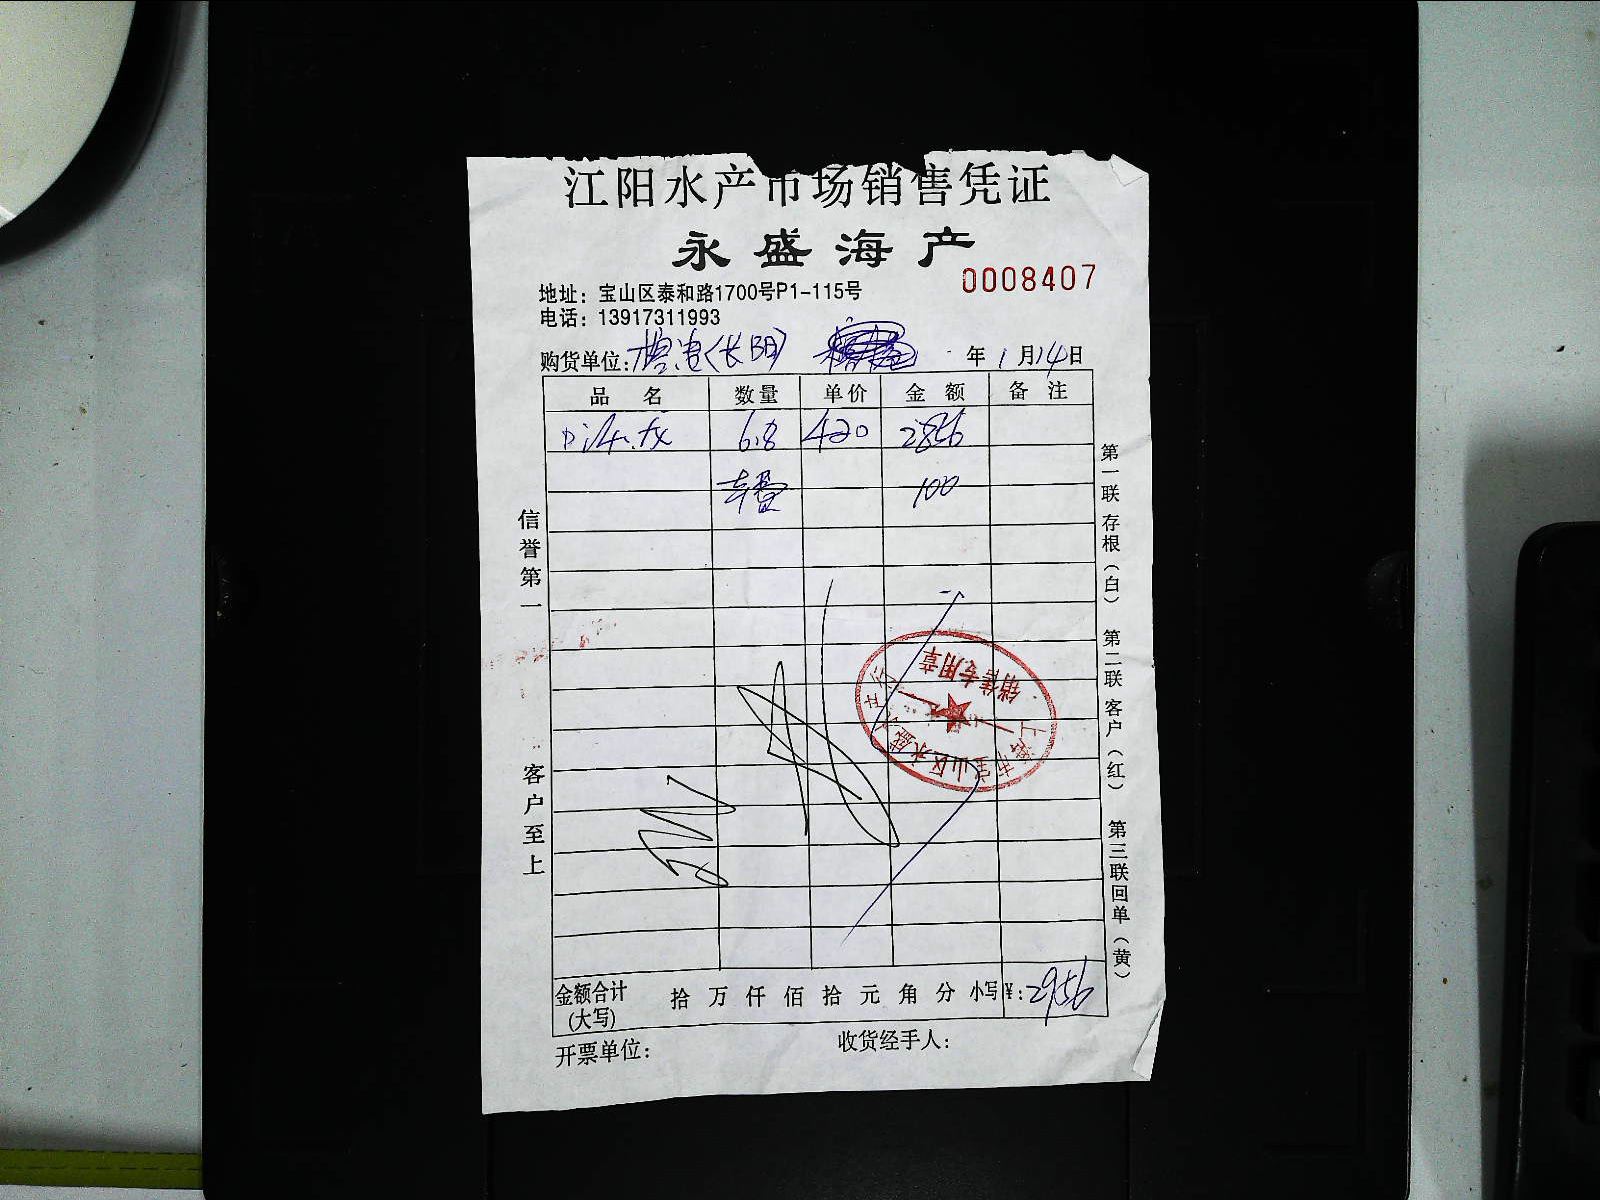 江阳水产市场销售凭证
永盛海产
0008407
地址：宝山区泰和路1700号P1-115号
电话：13917311993
购货单位： (长阳) 年 1 月 14 日
品 名 数量 单价 金 额 备 注
龙 6.8 420 2856
车费 100
信誉第一
客户至上
第一联 存根（白） 第二联 客户（红） 第三联回单（黄）
销售专用章
上海市宝山区永盛
金额合计 拾 万 仟 佰 拾 元 角 分 小写¥：2956
(大写)
开票单位： 收货经手人：